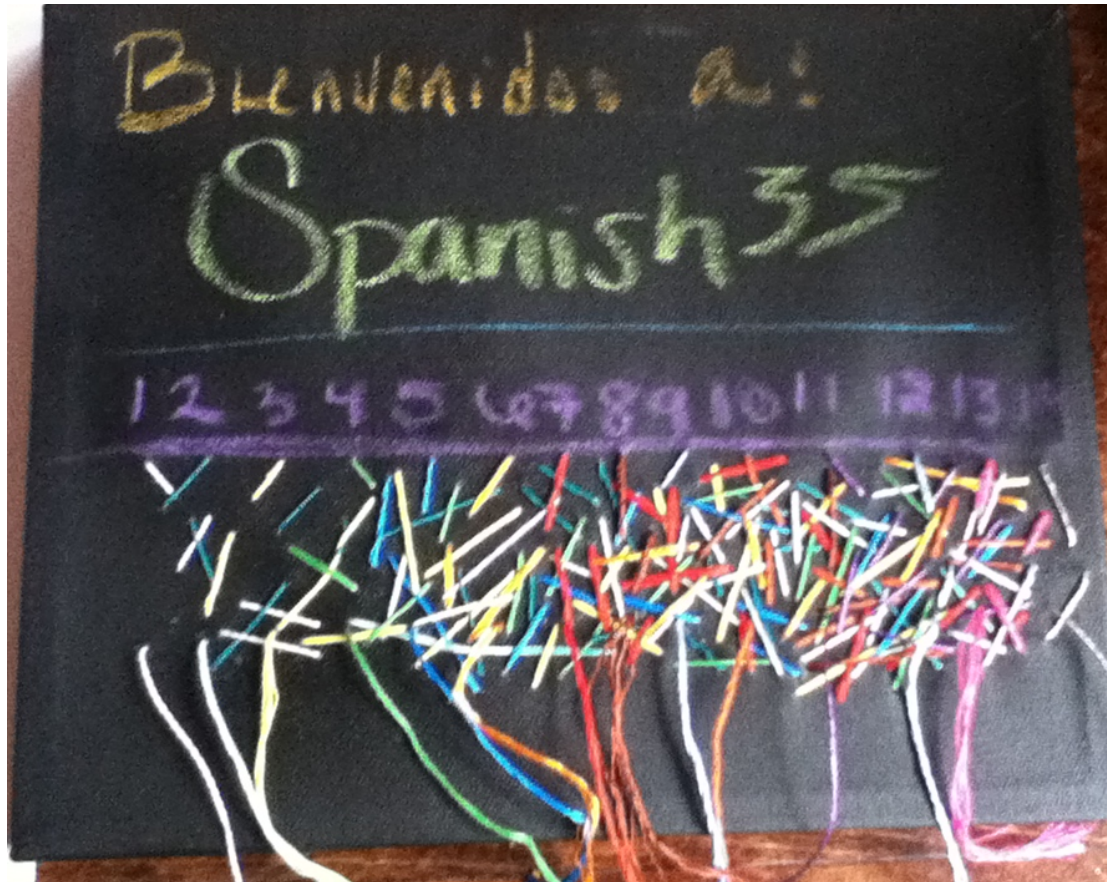 Bienvenidos a:
Spanish 35
1 2 3 4 5 6 7 8 9 10 11 12 13 14